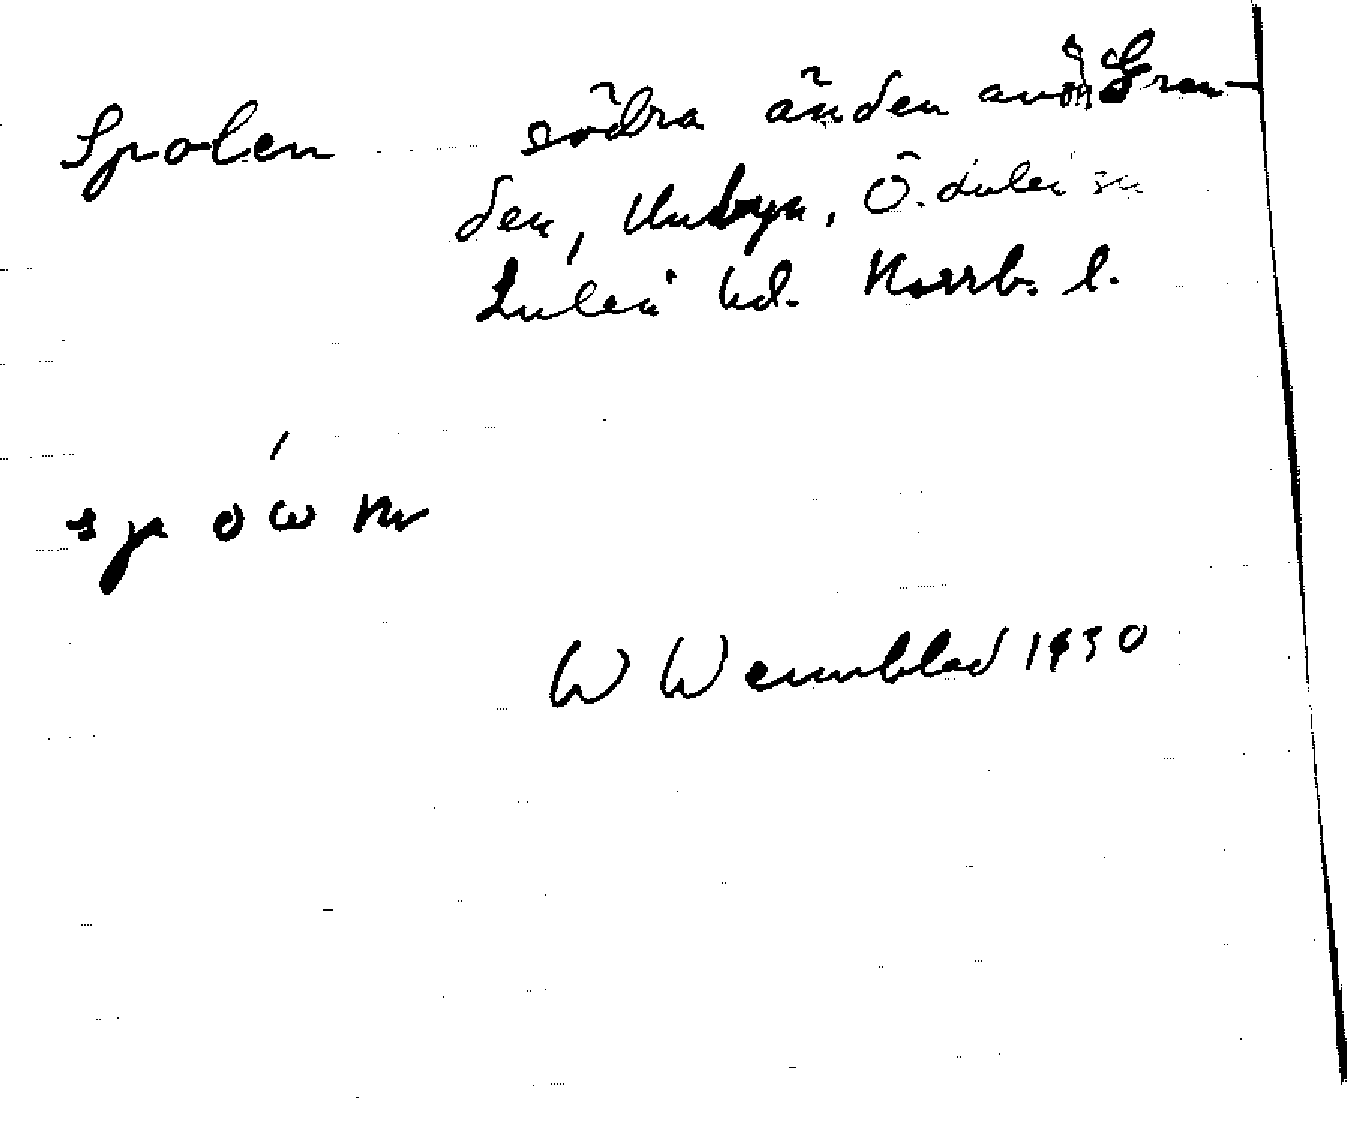 Spolen södra änden av ön Gran-
den, Unbyn, Ö. Luleå sn
Luleå hd. Norrb. l.
W Wennblad 1930